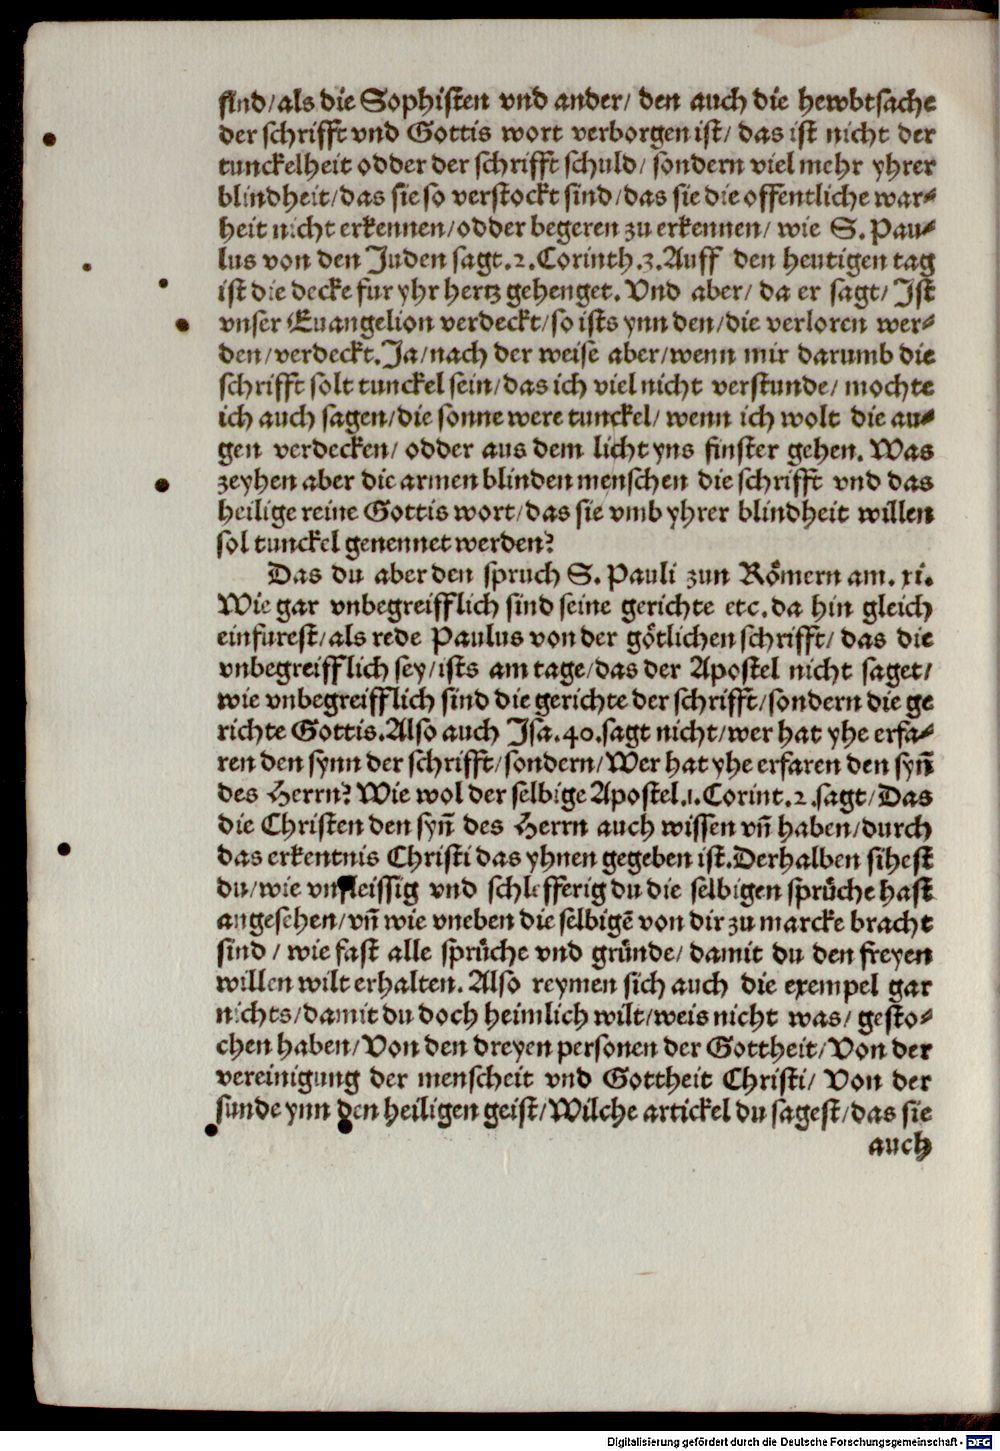 sind/als die Sophisten vnd ander/ den auch die hewbtsache
der schrifft vnd Gottis wort verborgen ist/ das ist nicht der
tunckelheit odder der schrifft schuld/ sondern viel mehr yhrer
blindheit/das sie so verstockt sind/das sie die offentliche war⸗
heit nicht erkennen/odder begeren zu erkennen/ wie S. Pau⸗
lus von den Juden sagt.2.Corinth.3.Auff den heutigen tag
ist die decke fur yhr hertz gehenget. Vnd aber/ da er sagt/ Ist
vnser Euangelion verdeckt/so ists ynn den/die verloren wer⸗
den/verdeckt.Ja/nach der weise aber/wenn mir darumb die
schrifft solt tunckel sein/das ich viel nicht verstunde/ mochte
ich auch sagen/die sonne were tunckel/ wenn ich wolt die au⸗
gen verdecken/ odder aus dem licht yns finster gehen. Was
zeyhen aber die armen blinden menschen die schrifft vnd das
heilige reine Gottis wort/das sie vmb yhrer blindheit willen
sol tunckel genennet werden?
Das du aber den spruch S. Pauli zun Römern am. xi.
Wie gar vnbegreifflich sind seine gerichte etc. da hin gleich
einfurest/als rede Paulus von der götlichen schrifft/ das die
vnbegreifflich sey/ists am tage/das der Apostel nicht saget/
wie vnbegreifflich sind die gerichte der schrifft/sondern die ge
richte Gottis.Also auch Isa.40.sagt nicht/wer hat yhe erfa⸗
ren den synn der schrifft/sondern/Wer hat yhe erfaren den syñ
des Herrn? Wie wol der selbige Apostel.1.Corint.2.sagt/Das
die Christen den syñ des Herrn auch wissen vñ haben/durch
das erkentnis Christi das yhnen gegeben ist.Derhalben sihest
du/wie vnfleissig vnd schlefferig du die selbigen sprüche hast
angesehen/vñ wie vneben die selbigẽ von dir zu marcke bracht
sind / wie fast alle sprüche vnd gründe/ damit du den freyen
willen wilt erhalten. Also reymen sich auch die exempel gar
nichts/damit du doch heimlich wilt/weis nicht was/ gesto⸗
chen haben/Von den dreyen personen der Gottheit/Von der
vereinigung der menscheit vnd Gottheit Christi/ Von der
sunde ynn den heiligen geist/Wilche artickel du sagest/das sie
auch
Digitalisierung gefördert durch die Deutsche Forschungsgemeinschaft - DFG